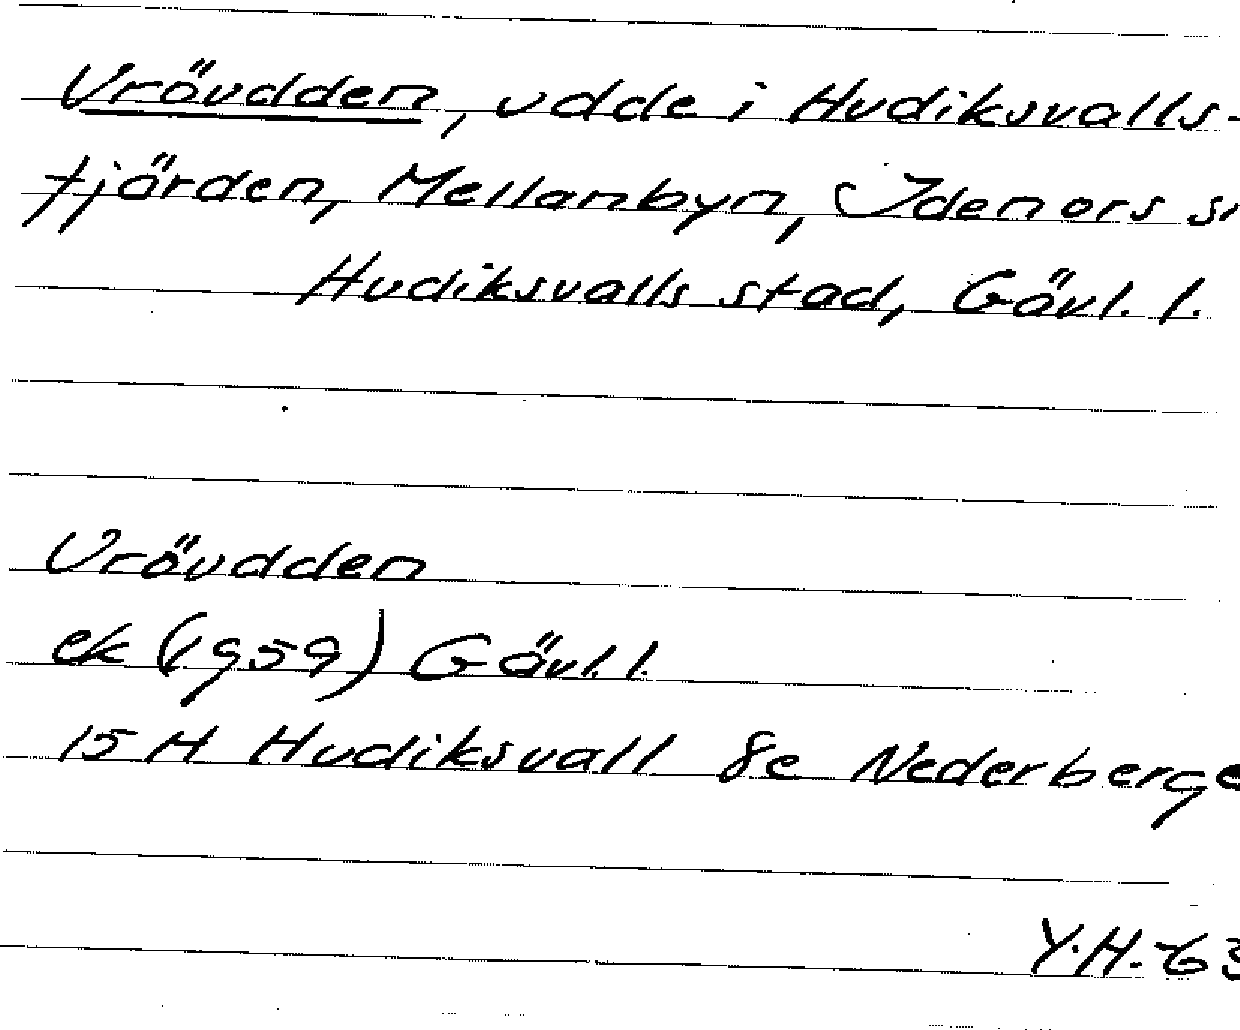 Vröudden, udde i Hudiksvalls-
fjärden, Mellanbyn, Idenors s
Hudiksvalls stad, Gävl. l.
Vröudden
ek (1959) Gävl. l.
15 H Hudiksvall 8e Nederberge
Y.H.-63